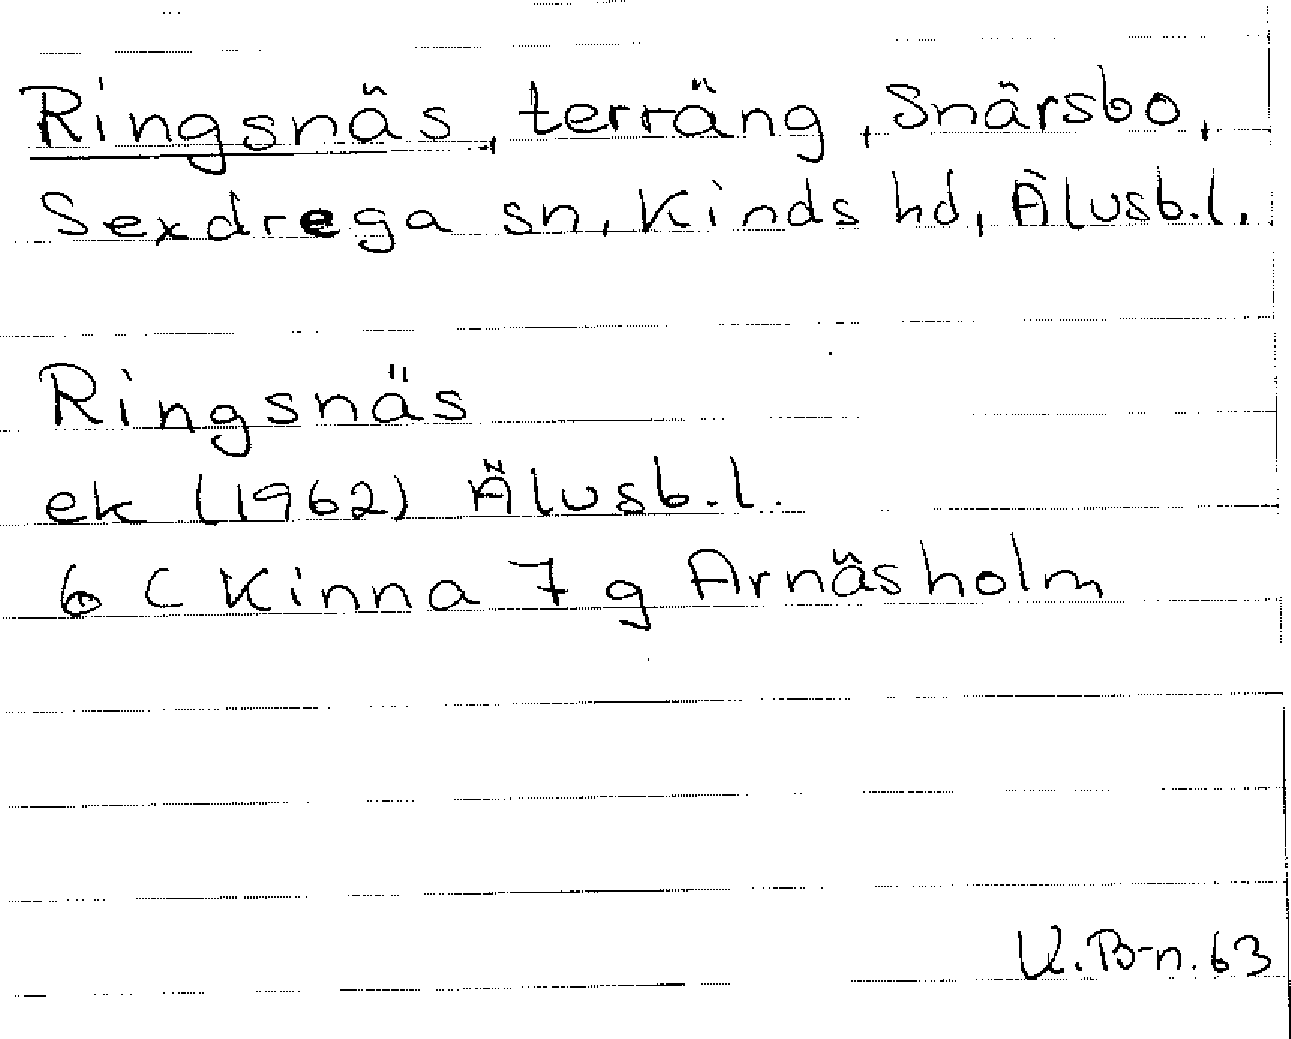 Ringsnäs, terräng, Snärsbo,
Sexdrega sn, Kinds hd, Älvsb.l.
Ringsnäs
ek (1962) Älvsb.l.
6 C Kinna 7 g Arnäsholm
K.B-n.63